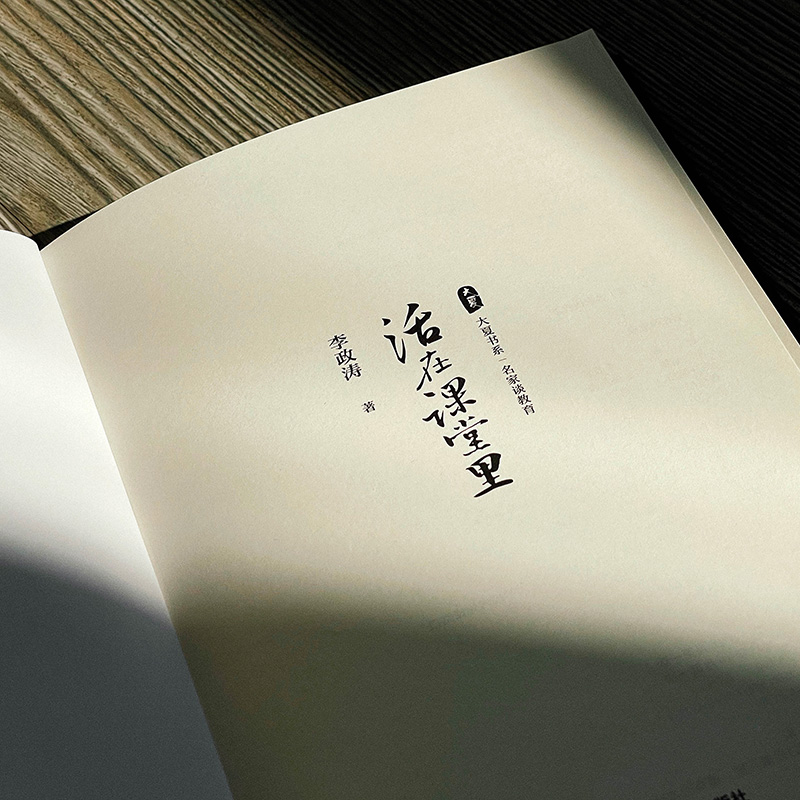 大夏
大夏书系｜名家谈教育
活在课堂里
李政涛 著